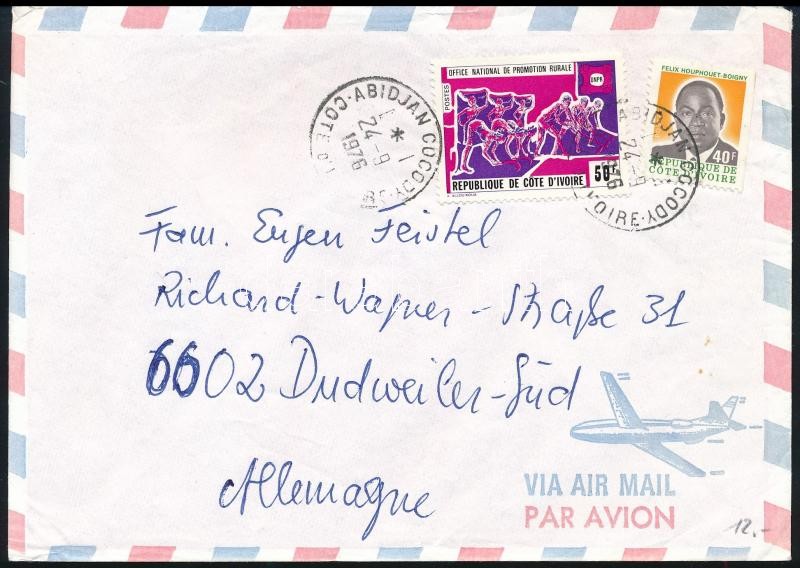 OFFICE NATIONAL DE PROMOTION RURALE
UNPR
POSTES
50F
REPUBLIQUE DE CÔTE D'IVOIRE
FELIX HOUPHOUET-BOIGNY
40F
REPUBLIQUE DE
CÔTE D'IVOIRE
ABIDJAN COCODY
24-9
1976
ABIDJAN COCODY
24-9
1976
Fam. Eugen Feistel
Richard-Wagner-Straße 31
6602 Dudweiler-Süd
Allemagne
VIA AIR MAIL
PAR AVION
12.-